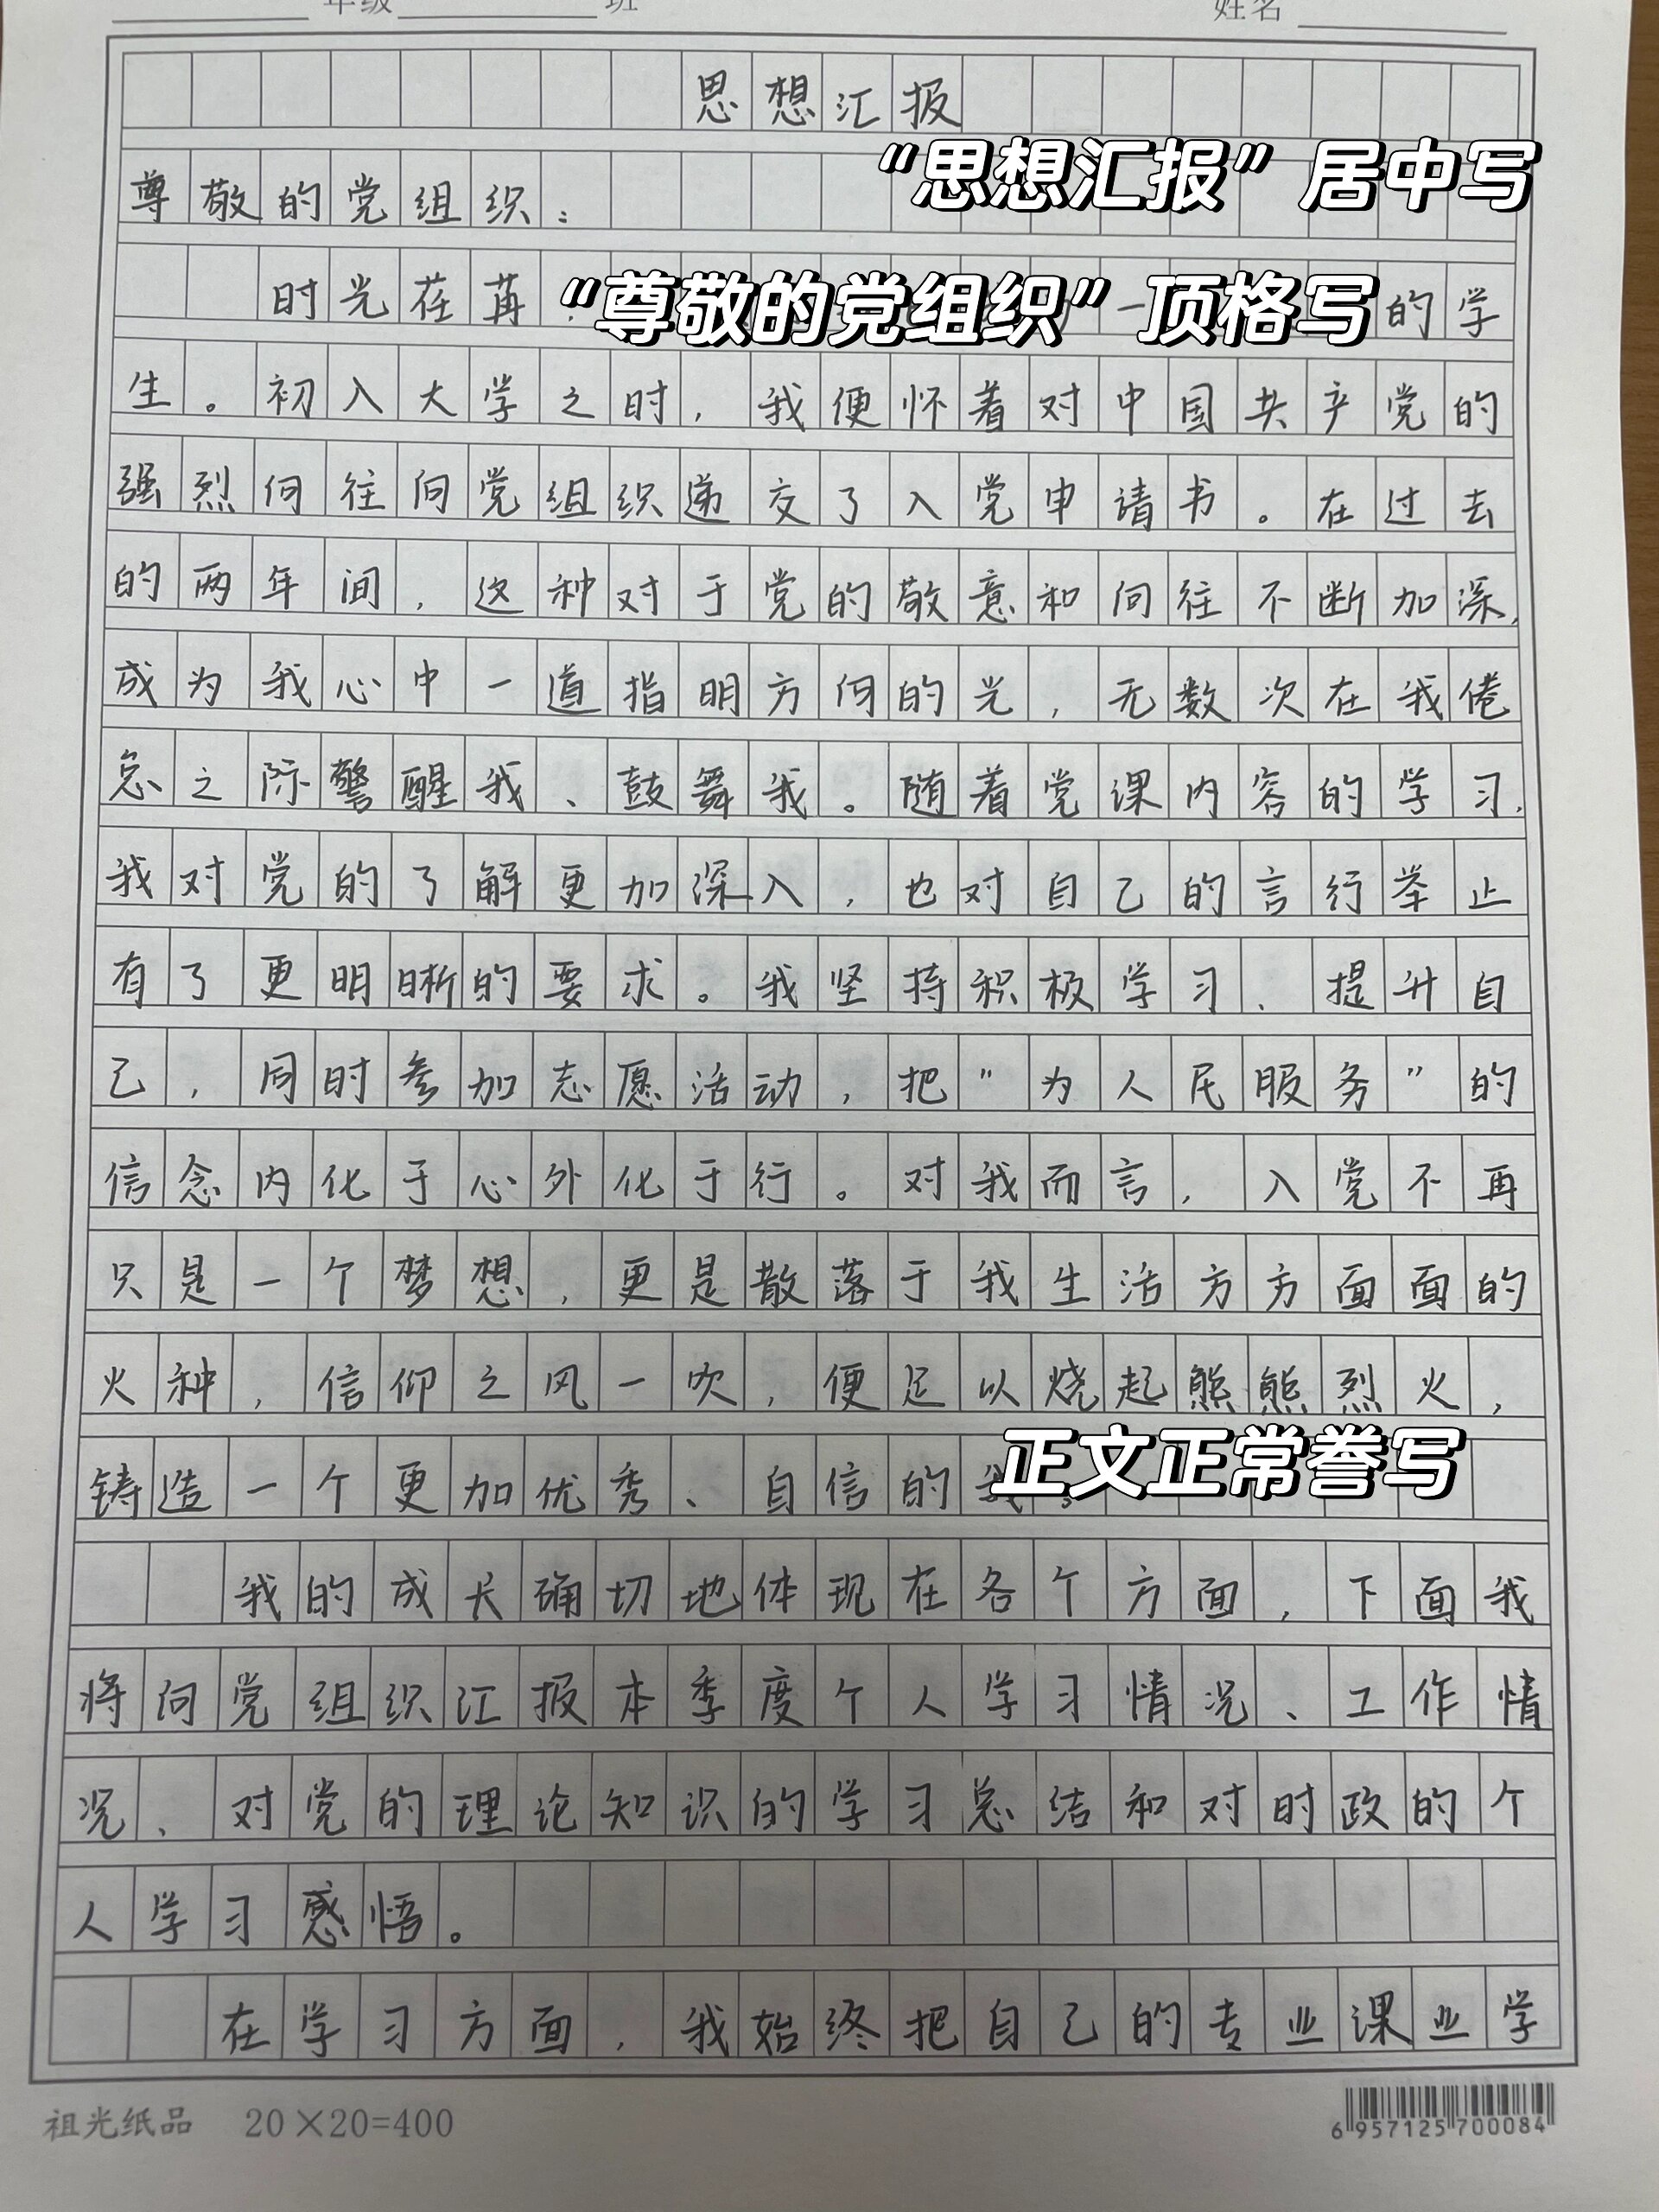 年级 班 姓名
思想汇报
“思想汇报”居中写
尊敬的党组织：
时光荏苒， 一 的学
“尊敬的党组织”顶格写
生。初入大学之时，我便怀着对中国共产党的
强烈向往向党组织递交了入党申请书。在过去
的两年间，这种对于党的敬意和向往不断加深，
成为我心中一道指明方向的光，无数次在我倦
怠之际警醒我、鼓舞我。随着党课内容的学习，
我对党的了解更加深入，也对自己的言行举止
有了更明晰的要求。我坚持积极学习、提升自
己，同时参加志愿活动，把“为人民服务”的
信念内化于心外化于行。对我而言，入党不再
只是一个梦想，更是散落于我生活方方面面的
火种，信仰之风一吹，便足以烧起熊熊烈火，
铸造一个更加优秀、自信的我。
正文正常誊写
我的成长确切地体现在各个方面，下面我
将向党组织汇报本季度个人学习情况、工作情
况、对党的理论知识的学习总结和对时政的个
人学习感悟。
在学习方面，我始终把自己的专业课业学
祖光纸品 20×20=400
6 957125 700084